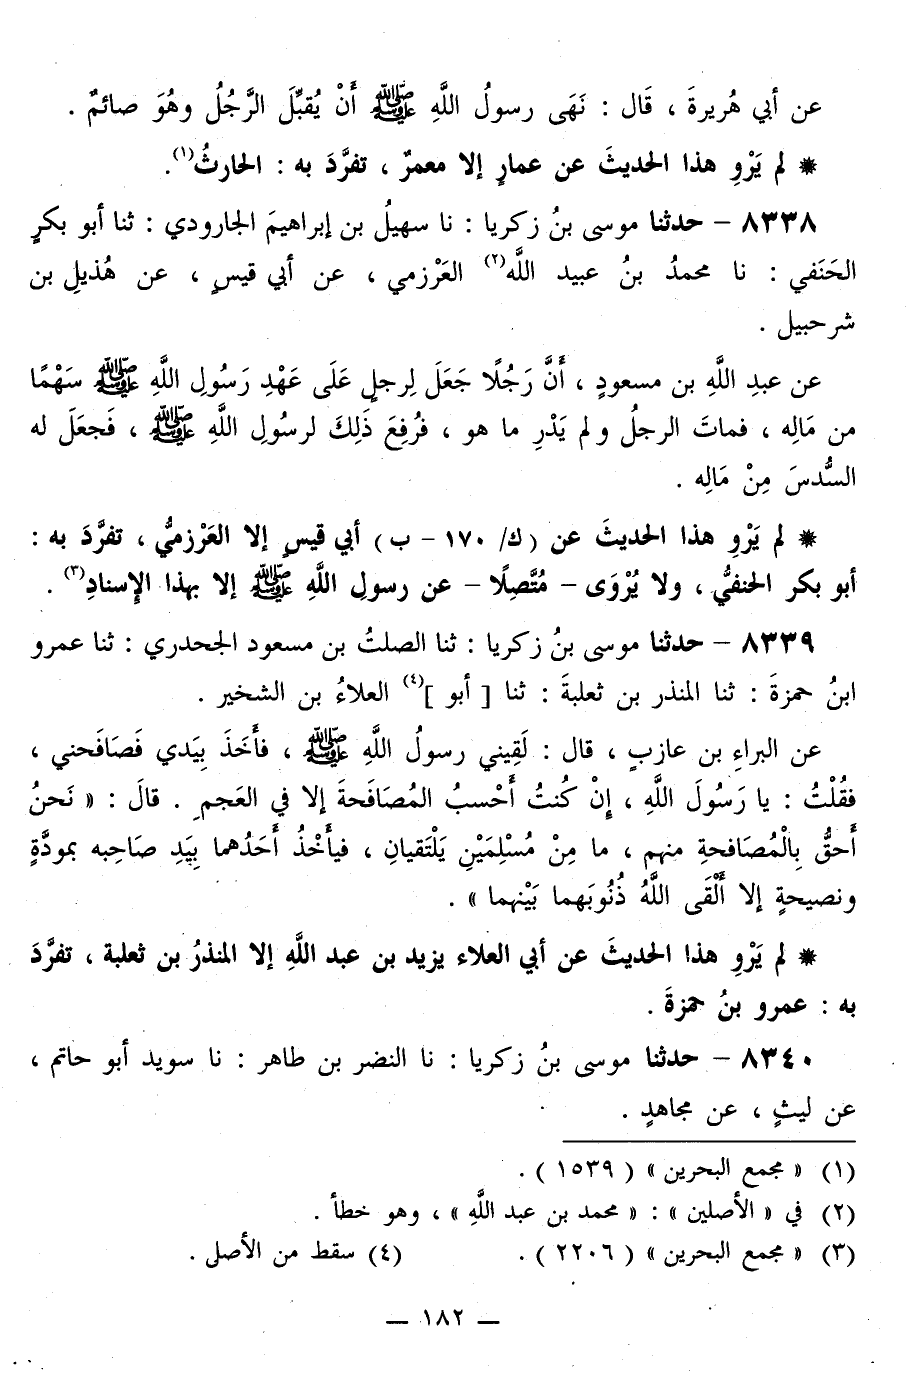 عن أبي هُريرةَ ، قَال : نَهَى رسولُ اللَّهِ ﷺ أَنْ يُقبِّلَ الرَّجُلُ وهُوَ صائمٌ .
* لم يَرْوِ هذا الحديثَ عن عمارٍ إلا معمرٌ ، تفرَّدَ به : الحارثُ(١).
٨٣٣٨ – حدثنا موسى بنُ زكريا : نا سهيلُ بن إبراهيمَ الجارودي : ثنا أبو بكرٍ
الحَنَفي : نا محمدُ بنُ عبيد اللَّه(٢) العَرْزمي ، عن أبي قيسٍ ، عن هُذيلِ بن
شرحبيل .
عن عبدِ اللَّهِ بن مسعودٍ ، أَنَّ رَجُلًا جَعَلَ لِرجلٍ عَلَى عَهْدِ رَسُولِ اللَّهِ ﷺ سَهْمًا
من مَالِه ، فماتَ الرجلُ ولم يَدْرِ ما هو ، فرُفِعَ ذَلِكَ لرسُولِ اللَّهِ ﷺ ، فَجعَلَ له
السُّدسَ مِنْ مَالِه .
* لم يَرْوِ هذا الحديثَ عن (ك/ ١٧٠ – ب) أبي قيسٍ إلا العَرْزميُّ ، تفرَّدَ به :
أبو بكر الحنفيُّ ، ولا يُرْوَى – مُتَّصِلًا – عن رسولِ اللَّهِ ﷺ إلا بهذا الإِسنادِ(٣) .
٨٣٣٩ – حدثنا موسى بنُ زكريا : ثنا الصلتُ بن مسعود الجحدري : ثنا عمرو
ابنُ حمزةَ : ثنا المنذر بن ثعلبةَ : ثنا [ أبو ](٤) العلاءُ بن الشخير .
عن البراءِ بن عازبٍ ، قال : لَقِيني رسولُ اللَّهِ ﷺ ، فأَخَذَ بِيَدي فَصَافَحني ،
فقُلْتُ : يا رَسُولَ اللَّهِ ، إِنْ كُنتُ أَحْسبُ المُصَافَحةَ إلا في العَجمِ . قالَ : « نَحنُ
أَحقُّ بِالْمُصَافحةِ منهم ، ما مِنْ مُسْلِمَيْنِ يَلْتَقيانِ ، فيأْخْذُ أَحَدُهما بِيَدِ صَاحِبه بمودَّةٍ
ونصيحةٍ إلا أَلْقَى اللَّهُ ذُنُوبَهما بَيْنهما » .
* لم يَرْوِ هذا الحديثَ عن أبي العلاء يزيد بن عبد اللَّهِ إلا المنذرُ بن ثعلبة ، تفرَّدَ
به : عمرو بنُ حمزةَ .
٨٣٤٠ – حدثنا موسى بنُ زكريا : نا النضر بن طاهر : نا سويد أبو حاتم ،
عن ليثٍ ، عن مجاهدٍ .
(١) « مجمع البحرين » ( ١٥٣٩ ) .
(٢) في « الأصلين » : « محمد بن عبد اللَّهِ » ، وهو خطأ .
(٣) « مجمع البحرين » ( ٢٢٠٦ ) . (٤) سقط من الأصل .
– ١٨٢ –